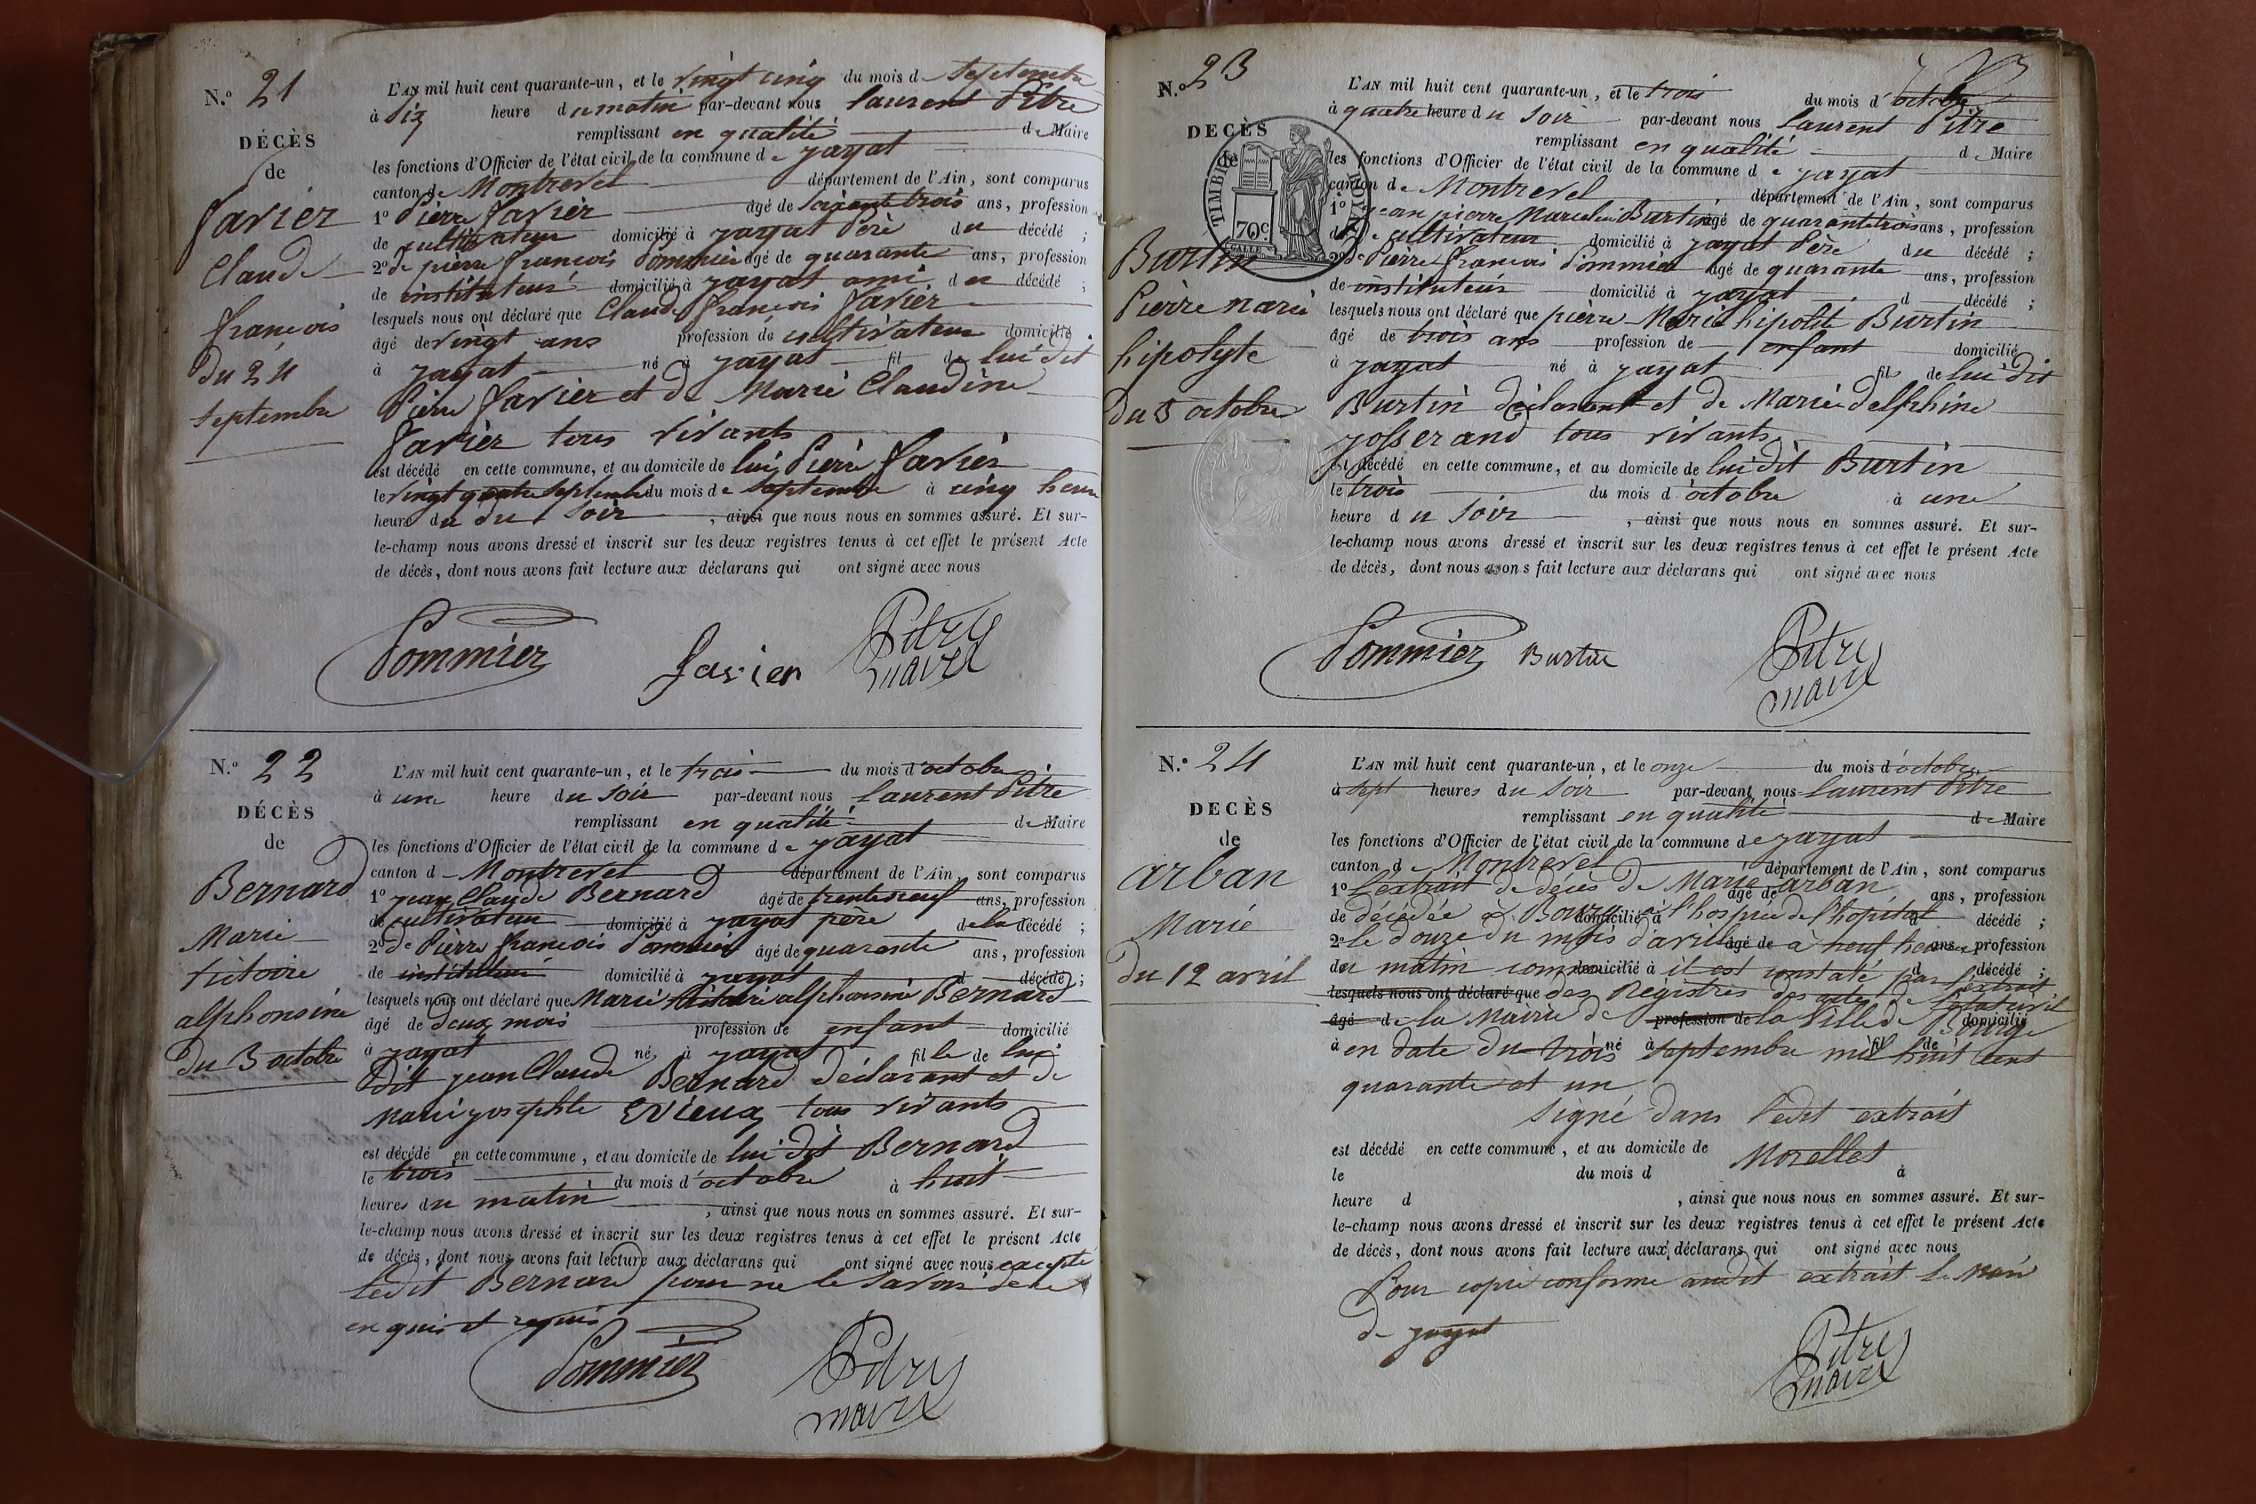 N.o 21
DÉCÈS
de
favier
Claude
françois
du 24
septembre
L'AN mil huit cent quarante-un, et le vingt cinq du mois de septembre
à dix heure du matin par-devant nous laurent Pitre
remplissant en qualité de Maire
les fonctions d'Officier de l'état civil de la commune de jayat
canton de Montrevel département de l'Ain, sont comparus
1o Pierre favier âgé de soixante trois ans, profession
de cultivateur domicilié à jayat Père du décédé ;
2o de pierre françois Pommier âgé de quarante ans, profession
de instituteur domicilié à jayat ami du décédé ;
lesquels nous ont déclaré que Claude françois favier
âgé de vingt ans profession de cultivateur domicilié
à jayat né à jayat fil de lui dit
Pierre favier et de Marie Claudine
favier tous vivants
est décédé en cette commune, et au domicile de lui Pierre favier
le vingt quatre septembre du mois de septembre à cinq heure
heure du du soir, ainsi que nous nous en sommes assuré. Et sur-
le-champ nous avons dressé et inscrit sur les deux registres tenus à cet effet le présent Acte
de décès, dont nous avons fait lecture aux déclarans qui ont signé avec nous
Pommier favier Pitre
maire
N.o 22
DÉCÈS
de
Bernard
Marie
victoire
alphonsine
du 3 octobre
L'AN mil huit cent quarante-un, et le trois du mois d'octobre
à une heure du soir par-devant nous laurent Pitre
remplissant en qualité de Maire
les fonctions d'Officier de l'état civil de la commune de jayat
canton d Montrevel département de l'Ain, sont comparus
1o jean Claude Bernard âgé de trente neuf ans, profession
de cultivateur domicilié à jayat père de la décédé ;
2o de Pierre françois Pommier âgé de quarante ans, profession
de instituteur domicilié à jayat d décédé ;
lesquels nous ont déclaré que Marie victoire alphonsine Bernard
âgé de deux mois profession de enfant domicilié
à jayat né à jayat fille de lui
dit jean Claude Bernard déclarant et de
Marie josephte Evieux tous vivants
est décédé en cette commune, et au domicile de lui dit Bernard
le trois du mois d'octobre à huit
heures du matin, ainsi que nous nous en sommes assuré. Et sur-
le-champ nous avons dressé et inscrit sur les deux registres tenus à cet effet le présent Acte
de décès, dont nous avons fait lecture aux déclarans qui ont signé avec nous excepté
ledit Bernard pour ne le savoir de ce
enquis et requis
Pommier Pitre
maire
N. 23
DECÈS
de
Burtin
Pierre marie
hipolyte
du 3 octobre
TIMBRE ROYAL
70c
L'AN mil huit cent quarante-un, et le trois du mois d'octobre
à quatre heure du soir par-devant nous laurent Pitre
remplissant en qualité d Maire
les fonctions d'Officier de l'état civil de la commune de jayat
canton de Montrevel département de l'Ain, sont comparus
1o jean pierre Marcelin Burtin âgé de quarante trois ans, profession
de cultivateur domicilié à jayat Père du décédé ;
2o de Pierre françois Pommier âgé de quarante ans, profession
de instituteur domicilié à jayat d décédé ;
lesquels nous ont déclaré que pierre Marie hipolite Burtin
âgé de trois ans profession de enfant domicilié
à jayat né à jayat fil de lui dit
Burtin déclarant et de Marie delphine
josserand tous vivants
est décédé en cette commune, et au domicile de lui dit Burtin
le trois du mois d'octobre à une
heure du soir, ainsi que nous nous en sommes assuré. Et sur-
le-champ nous avons dressé et inscrit sur les deux registres tenus à cet effet le présent Acte
de décès, dont nous avons fait lecture aux déclarans qui ont signé avec nous
Pommier Burtin Pitre
maire
N.o 24
DECÈS
de
arban
Marie
du 12 avril
L'AN mil huit cent quarante-un, et le onze du mois d'octobre
à sept heures du soir par-devant nous laurent Pitre
remplissant en qualité de Maire
les fonctions d'Officier de l'état civil de la commune de jayat
canton de Montrevel département de l'Ain, sont comparus
1o L'extrait de décès de Marie arban âgé de ans, profession
de décédée à Bourg domicilié à l'hospice de l'hopital d décédé ;
2o le douze du mois d'avril âgé de à neuf heures ans, profession
de du matin comme domicilié à il est constaté par l'extrait d décédé ;
lesquels nous ont déclaré que des Registres des actes de l'état civil
âgé de la Mairie de profession de la Ville de Bourg domicilié
à en date du trois né à septembre mil huit cent fil de
quarante et un
signé dans ledit extrait
est décédé en cette commune, et au domicile de Morellet
le du mois d à
heure d, ainsi que nous nous en sommes assuré. Et sur-
le-champ nous avons dressé et inscrit sur les deux registres tenus à cet effet le présent Acte
de décès, dont nous avons fait lecture aux déclarans qui ont signé avec nous
Pour copie conforme audit extrait le Maire
de jayat
Pitre
maire